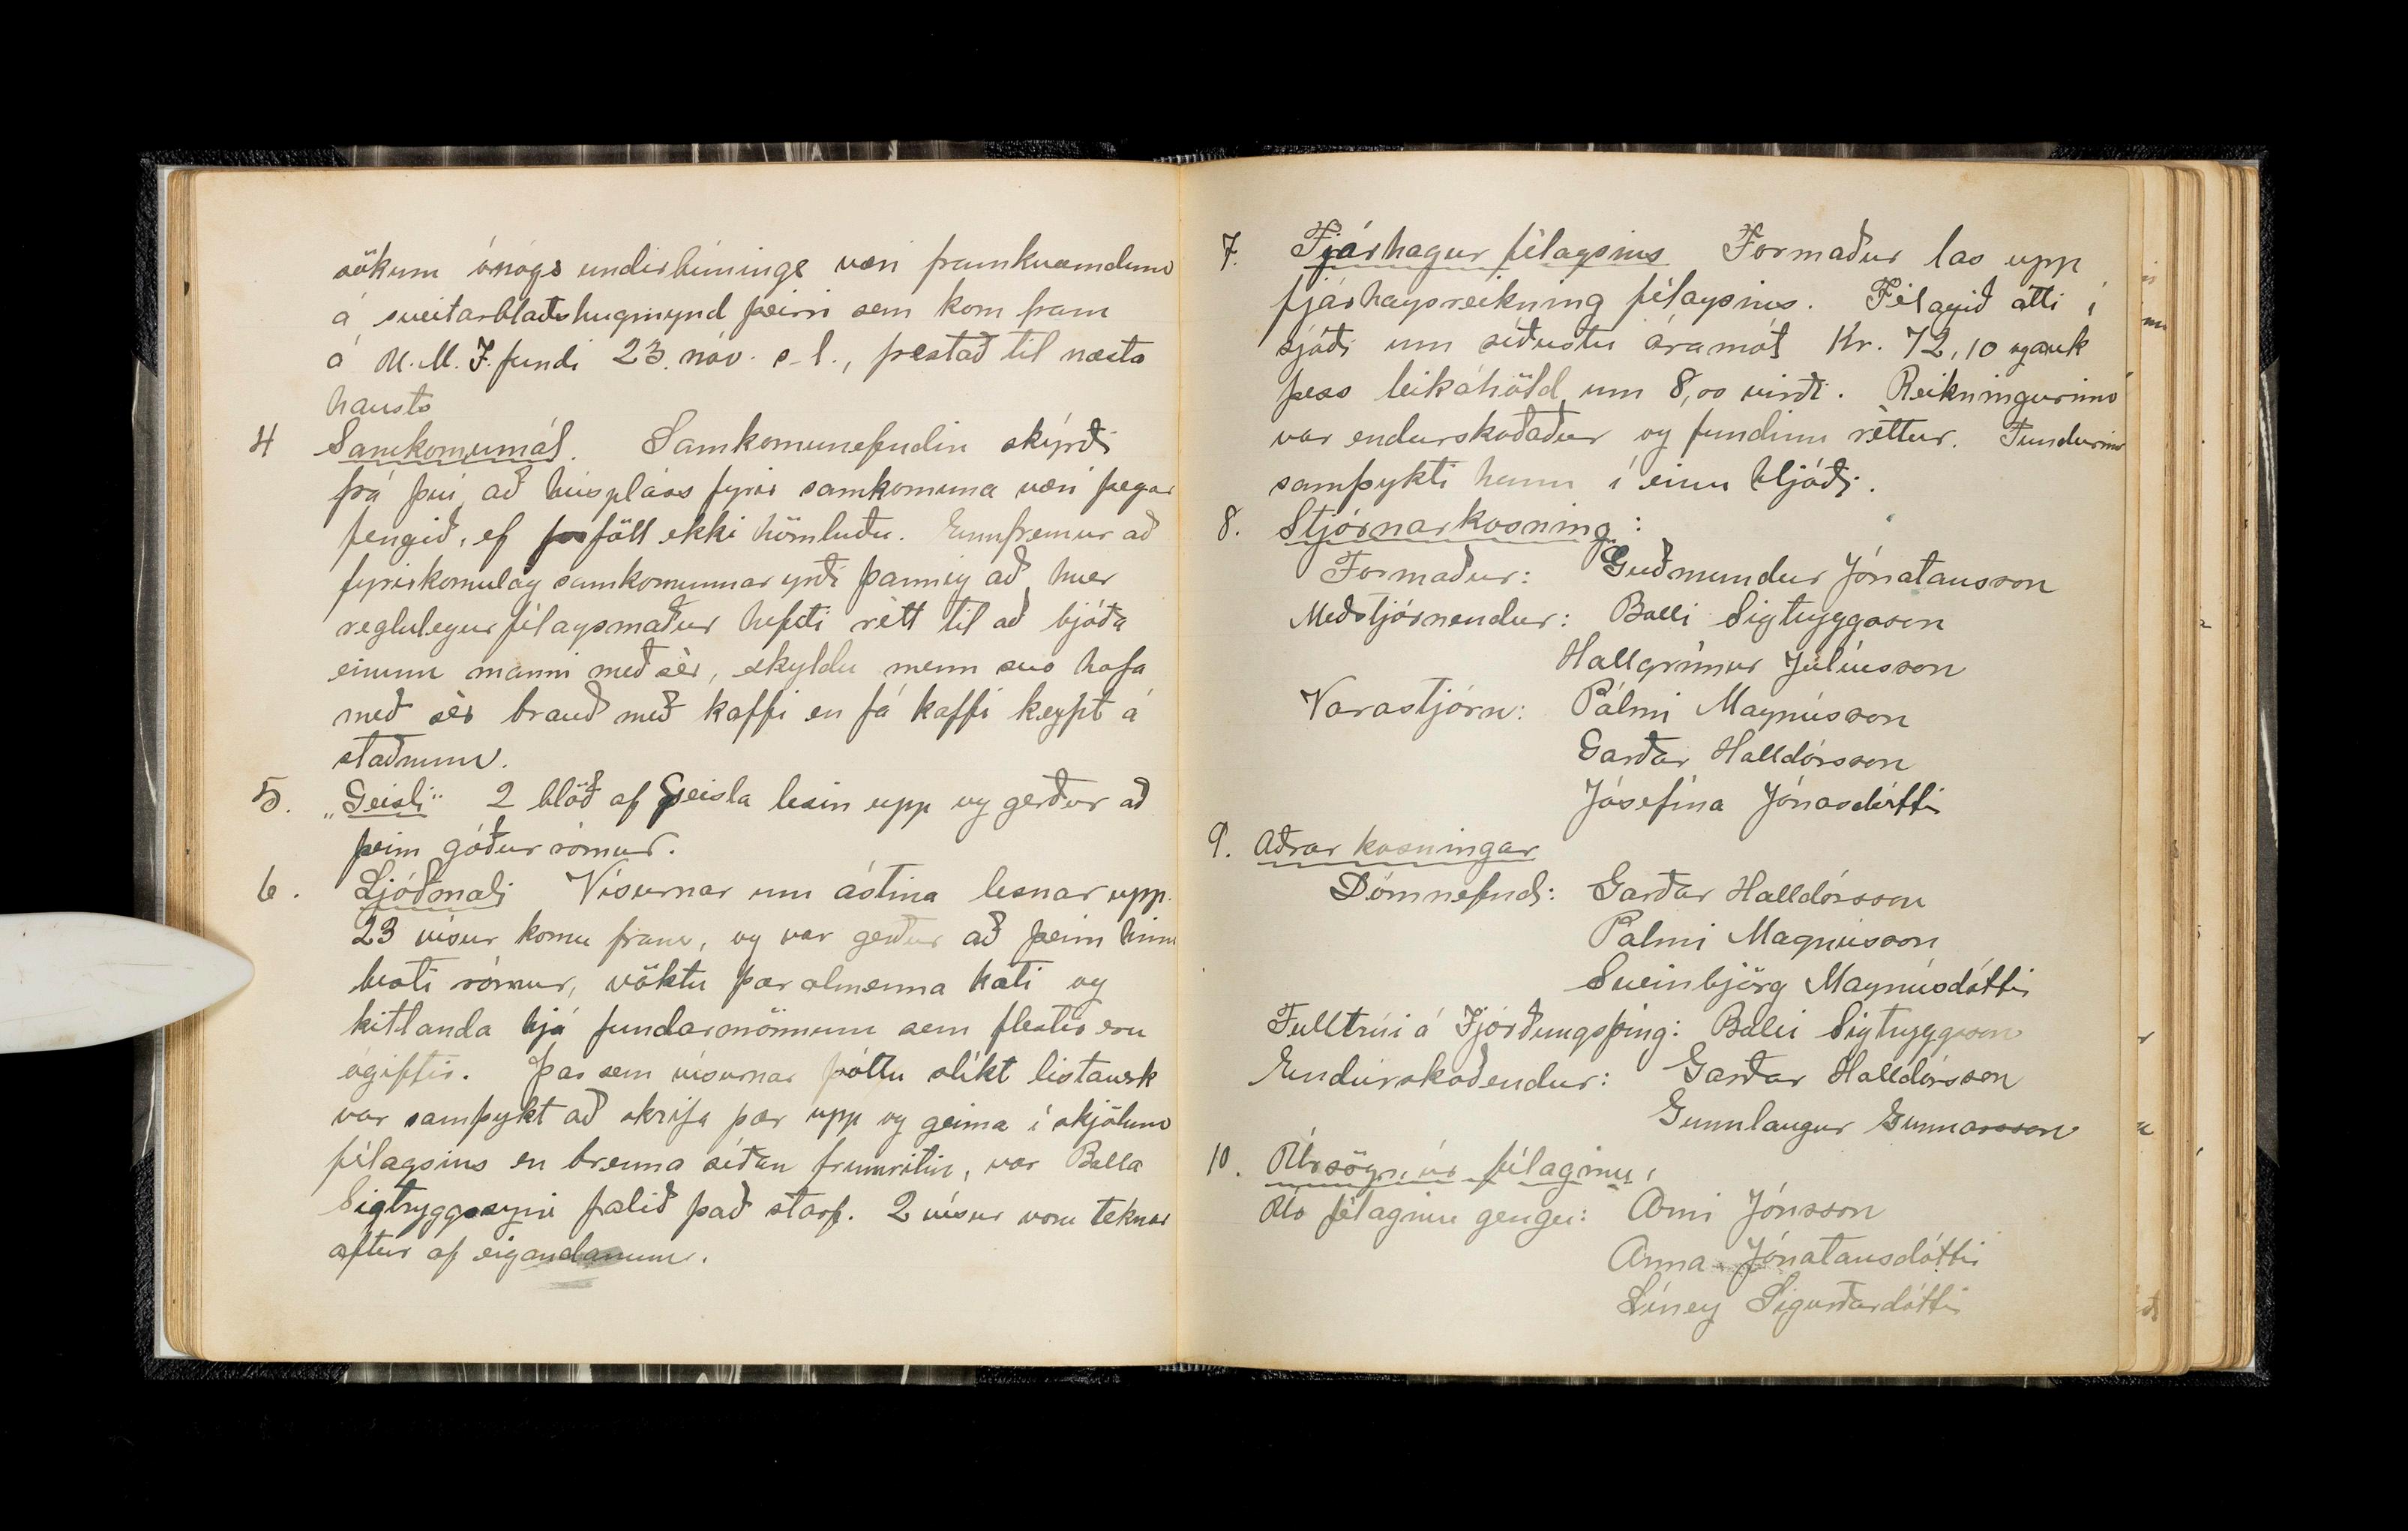 sökum ónógs undirbúnings væri framkvæmdum
á sveitarblaðshugmynd þeirri sem kom fram
á U.M.F. fundi 23. nóv. s-l., frestað til næsta
hausts
4 Samkomumál. Samkomunefndin skýrði
frá því, að húspláss fyrir samkomuna væri þegar
fengið, ef forföll ekki hömluðu. Ennfremur að
fyrirkomulag samkomunnar yrði þannig að hver
reglulegur félagsmaður hefði rétt til að bjóða
einum manni með sér, skyldu menn svo hafa
með sér brauð með kaffi en fá kaffi keypt á
staðnum.
5. „Geisli" 2 blöð af Geisla lesin upp og gerður að
þeim góður rómur.
6. Ljóðmæli Vísurnar um ástina lesnar upp.
23 vísur komu fram, og var gerður að þeim hinn
besti rómur, vöktu þær almenna kæti og
kitlanda hjá fundarmönnum sem flestir eru
ógiftir. Þar sem vísurnar þóttu slíkt listaverk
var samþykt að skrifa þær upp og geima í skjölum
félagsins en brenna síðan frumritin, var Balla
Sigtryggssyni falið það starf. 2 vísur voru teknar
aftur af eigandanum.
7. Fjárhagur félagsins Formaður las upp
fjárhagsreikning félagsins. Félagið átti í
sjóði um síðustu áramót Kr. 72,10 og auk
þess leikáhöld um 8,00 virði. Reikningurinn
var endurskoðaður og fundinn réttur. Fundurinn
samþykti hann í einu hljóði.
8. Stjórnarkosning:
Formaður: Guðmundur Jónatansson
Meðstjórnendur: Balli Sigtryggsson
Hallgrímur Júlíusson
Varastjórn: Pálmi Magnússon
Garðar Halldórsson
Jósefína Jónasdóttir
9. Aðrar kosningar
Dómnefnd: Garðar Halldórsson
Pálmi Magnússon
Sveinbjörg Magnúsdóttir
Fulltrúi á Fjórðungsþing: Balli Sigtryggsson
Endurskoðendur: Garðar Halldórsson
Gunnlaugur Gunnarsson
10. Úrsögn úr félaginu,
Úr félaginu gengu: Árni Jónsson
Anna Jónatansdóttir
Líney Sigurðardóttir